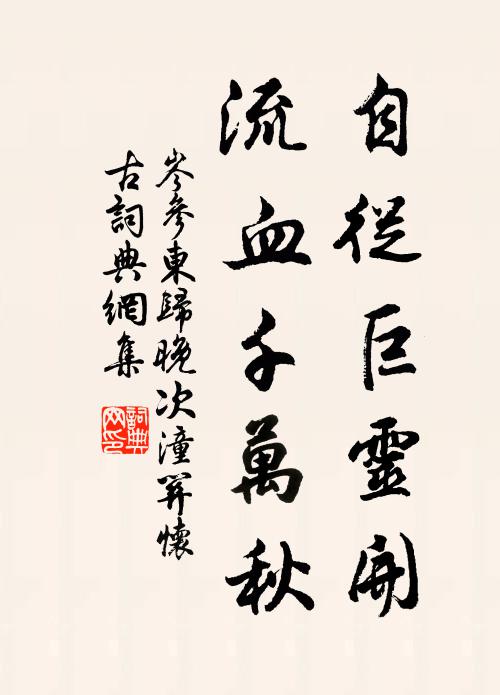 自從巨靈開
流血千萬秋
岑參東歸晚次潼關懷
古詞典網集
詞典
网印